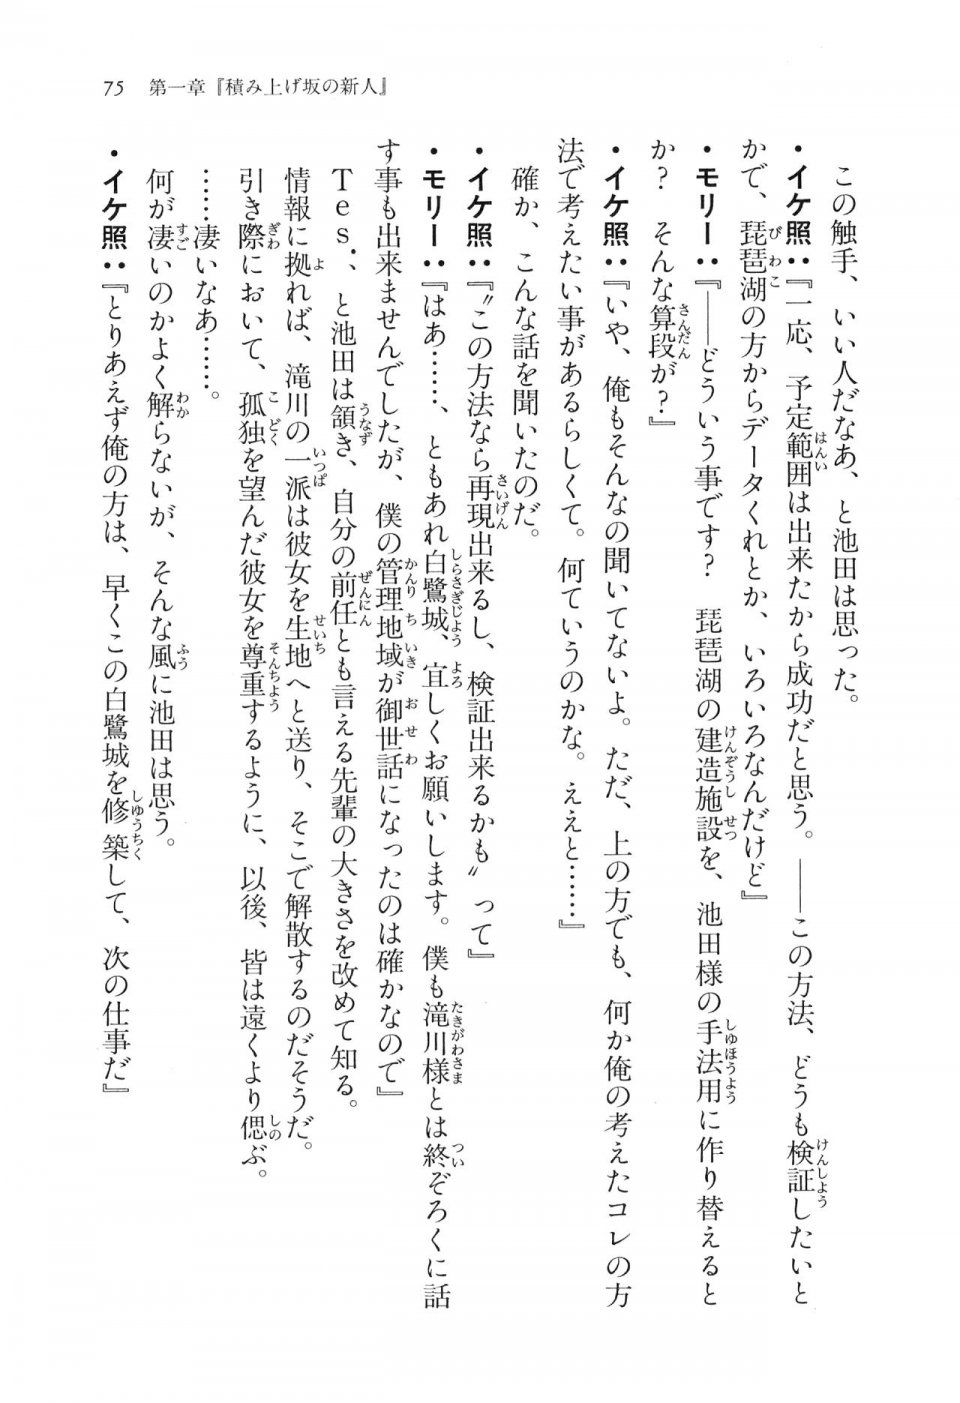 75　第一章『積み上げ坂の新人』
この触手、いい人だなあ、と池田は思った。
・イケ照：『一応、予定範囲は出来たから成功だと思う。――この方法、どうも検証したいと
かで、琵琶湖の方からデータくれとか、いろいろなんだけど』
・モリー：『――どういう事です？　琵琶湖の建造施設を、池田様の手法用に作り替えると
か？　そんな算段が？』
・イケ照：『いや、俺もそんなの聞いてないよ。ただ、上の方でも、何か俺の考えたコレの方
法で考えたい事があるらしくて。何ていうのかな。ええと……』
確か、こんな話を聞いたのだ。
・イケ照：『〝この方法なら再現出来るし、検証出来るかも〟って』
・モリー：『はあ……、ともあれ白鷺城、宜しくお願いします。僕も滝川様とは終ぞろくに話
す事も出来ませんでしたが、僕の管理地域が御世話になったのは確かなので』
Ｔｅｓ．、と池田は頷き、自分の前任とも言える先輩の大きさを改めて知る。
情報に拠れば、滝川の一派は彼女を生地へと送り、そこで解散するのだそうだ。
引き際において、孤独を望んだ彼女を尊重するように、以後、皆は遠くより偲ぶ。
……凄いなあ……。
何が凄いのかよく解らないが、そんな風に池田は思う。
・イケ照：『とりあえず俺の方は、早くこの白鷺城を修築して、次の仕事だ』